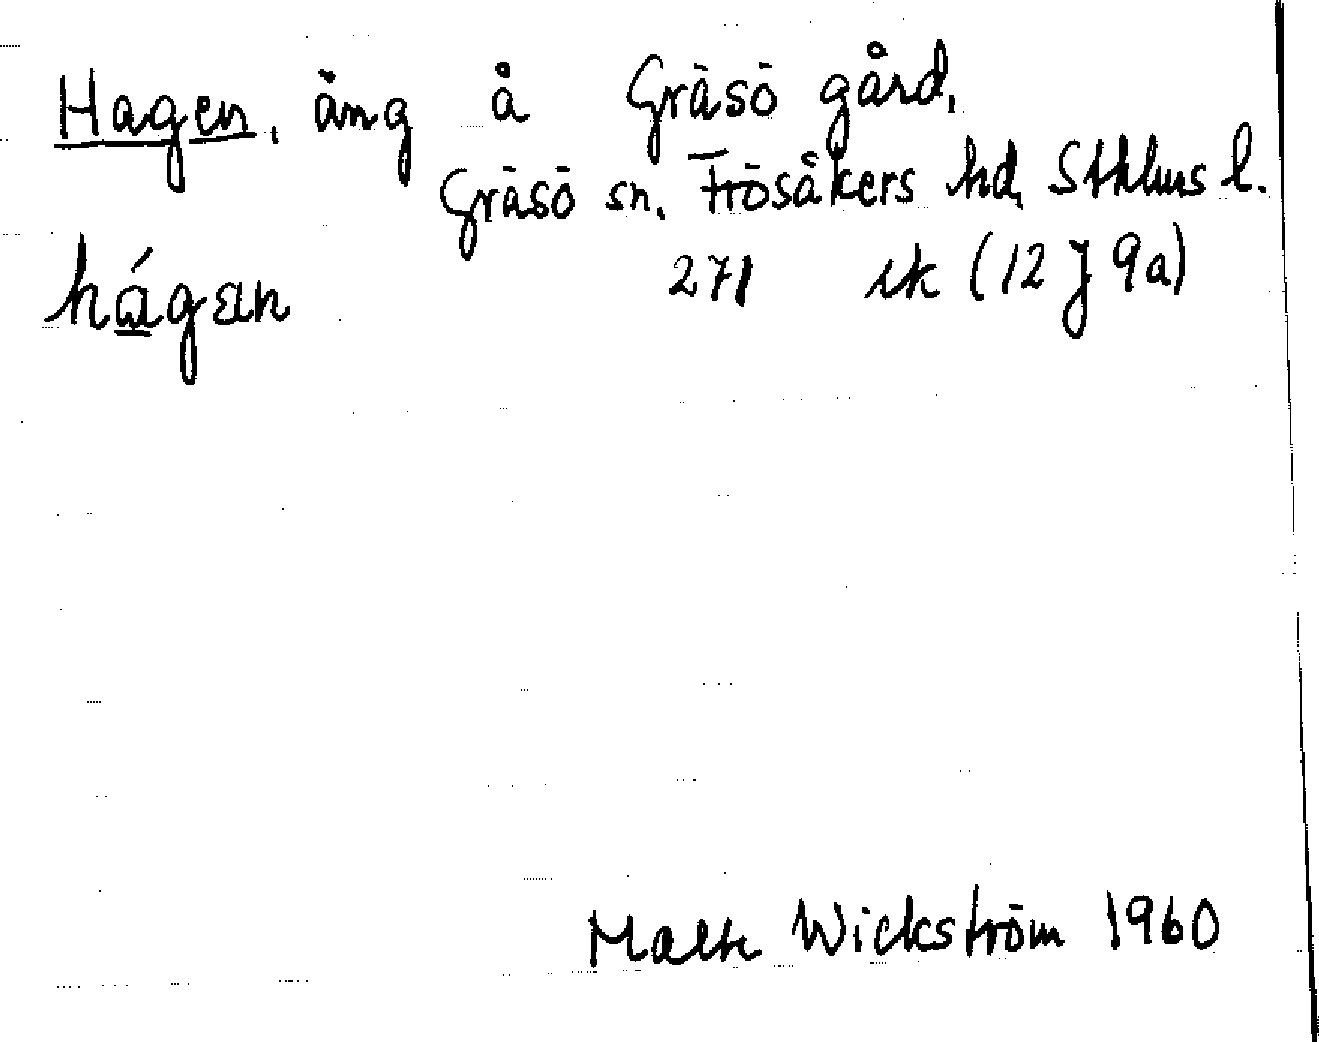 Hagen, äng å Gräsö gård,
Gräsö sn. Frösåkers hd, Sthlms l.
hágen 271 ek (12 J 9a)
Malte Wickström 1960